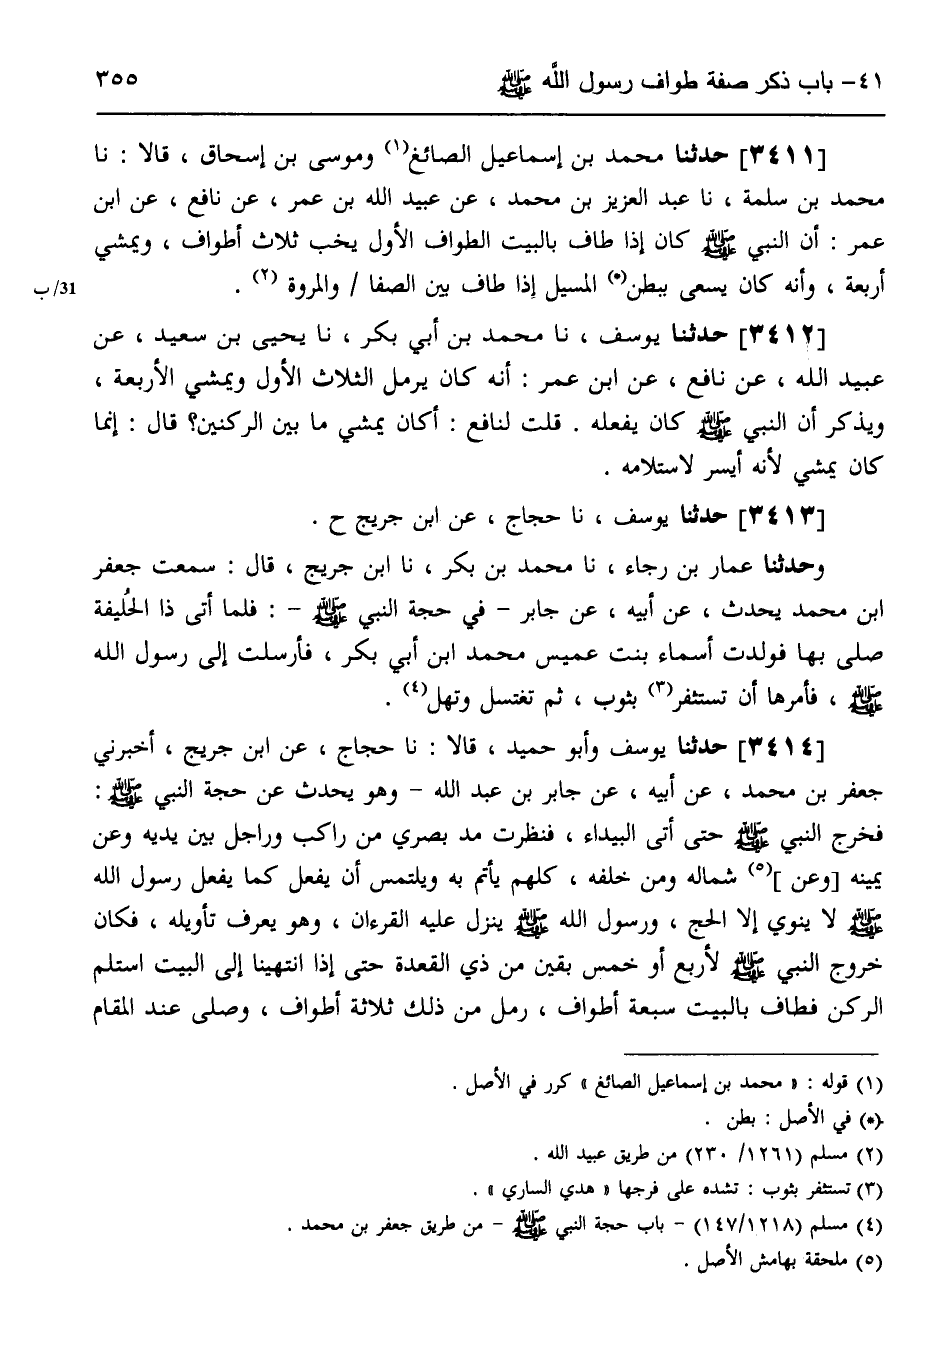 ٤١- باب ذكر صفة طواف رسول اللَّه ﷺ ٣٥٥
[٣٤١١] حدثنا محمد بن إسماعيل الصائغ(١) وموسى بن إسحاق ، قالا : نا
محمد بن سلمة ، نا عبد العزيز بن محمد ، عن عبيد الله بن عمر ، عن نافع ، عن ابن
عمر : أن النبي ﷺ كان إذا طاف بالبيت الطواف الأول يخب ثلاث أطواف ، ويمشي
أربعة ، وأنه كان يسعى ببطن(*) المسيل إذا طاف بين الصفا / والمروة (٢) .
31/ب
[٣٤١٢] حدثنا يوسف ، نا محمد بن أبي بكر ، نا يحيى بن سعيد ، عن
عبيد الله ، عن نافع ، عن ابن عمر : أنه كان يرمل الثلاث الأول ويمشي الأربعة ،
ويذكر أن النبي ﷺ كان يفعله . قلت لنافع : أكان يمشي ما بين الركنين؟ قال : إنما
كان يمشي لأنه أيسر لاستلامه .
[٣٤١٣] حدثنا يوسف ، نا حجاج ، عن ابن جريج ح .
وحدثنا عمار بن رجاء ، نا محمد بن بكر ، نا ابن جريج ، قال : سمعت جعفر
ابن محمد يحدث ، عن أبيه ، عن جابر – في حجة النبي ﷺ – : فلما أتى ذا الحُليفة
صلى بها فولدت أسماء بنت عميس محمد ابن أبي بكر ، فأرسلت إلى رسول الله
ﷺ ، فأمرها أن تستثفر(٣) بثوب ، ثم تغتسل وتهل(٤) .
[٣٤١٤] حدثنا يوسف وأبو حميد ، قالا : نا حجاج ، عن ابن جريج ، أخبرني
جعفر بن محمد ، عن أبيه ، عن جابر بن عبد الله – وهو يحدث عن حجة النبي ﷺ :
فخرج النبي ﷺ حتى أتى البيداء ، فنظرت مد بصري من راكب وراجل بين يديه وعن
يمينه [وعن ](٥) شماله ومن خلفه ، كلهم يأتم به ويلتمس أن يفعل كما يفعل رسول الله
ﷺ لا ينوي إلا الحج ، ورسول الله ﷺ ينزل عليه القرءان ، وهو يعرف تأويله ، فكان
خروج النبي ﷺ لأربع أو خمس بقين من ذي القعدة حتى إذا انتهينا إلى البيت استلم
الركن فطاف بالبيت سبعة أطواف ، رمل من ذلك ثلاثة أطواف ، وصلى عند المقام
(١) قوله : « محمد بن إسماعيل الصائغ » كرر في الأصل .
(*) في الأصل : بطن .
(٢) مسلم (١٢٦١/ ٢٣٠) من طريق عبيد الله .
(٣) تستثفر بثوب : تشده على فرجها « هدي الساري » .
(٤) مسلم (١٤٧/١٢١٨) – باب حجة النبي ﷺ – من طريق جعفر بن محمد .
(٥) ملحقة بهامش الأصل .